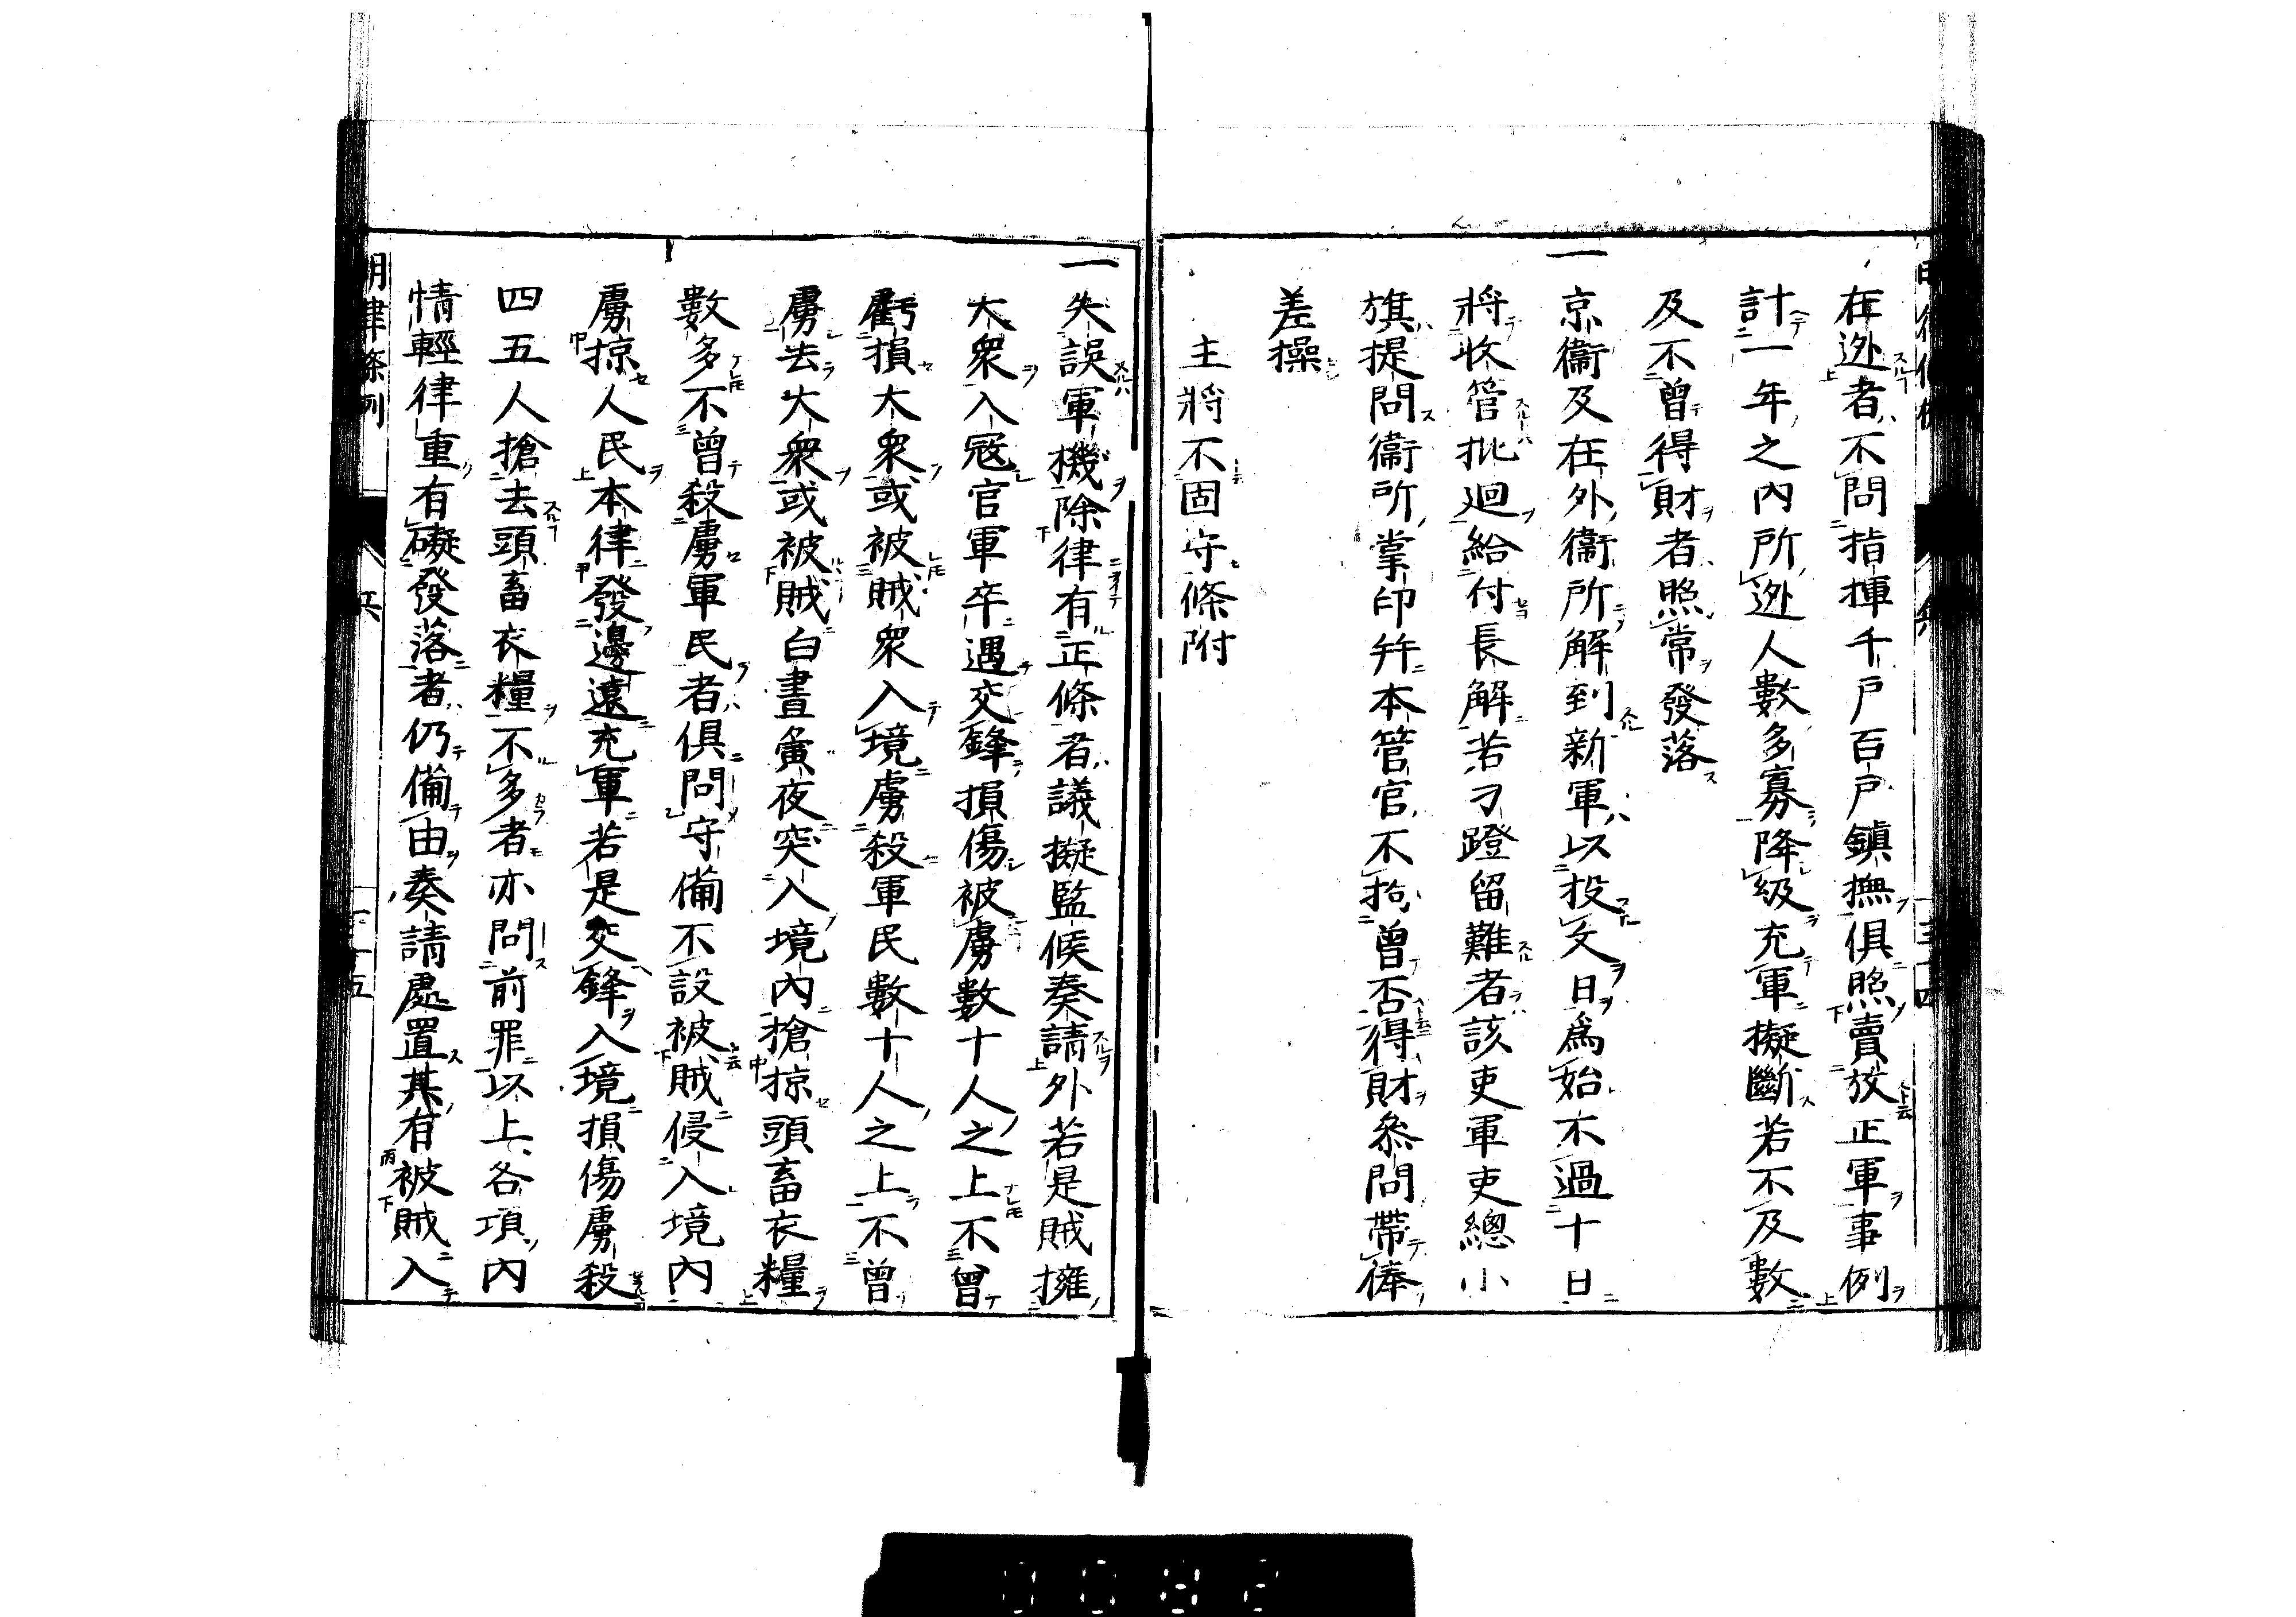 在迯者不問指揮千戸百戸鎮撫俱照賣放正軍事例
計一年之內所迯人數多寡降級充軍擬斷若不及數
及不曾得財者照常發落
一京衞及在外衞所解到新軍以投文日爲始不過十日
將收管批廻給付長解若刁蹬留難者該吏軍吏總小
旗提問衞所掌印并本管官不拘曾否得財叅問帶俸
差操
主將不固守條附
一失誤軍機除律有正條者議擬監候奏請外若是賊擁
大衆入寇官軍卒遇交鋒損傷被虜數十人之上不曾
虧損大衆或被賊衆入境虜殺軍民數十人之上不曾
虜去大衆或被賊白晝夤夜突入境內搶掠頭畜衣糧
數多不曾殺虜軍民者俱問守備不設被賊侵入境內
虜掠人民本律發邊遠充軍若是交鋒入境損傷虜殺
四五人搶去頭畜衣糧不多者亦問前罪以上各項內
情輕律重有礙發落者仍備由奏請處置其有被賊入
明律條例 兵 三十五